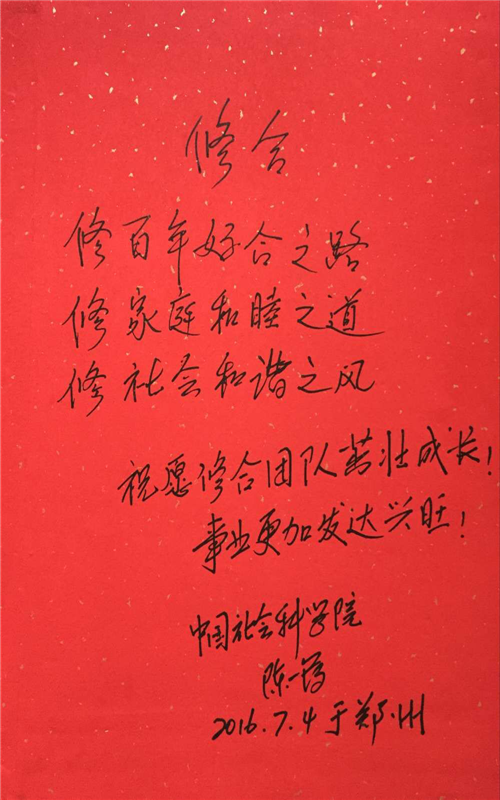 修合
修百年好合之路
修家庭和睦之道
修社会和谐之风
祝愿修合团队茁壮成长！
事业更加发达兴旺！
中国社会科学院
陈一筠
2016.7.4于郑州